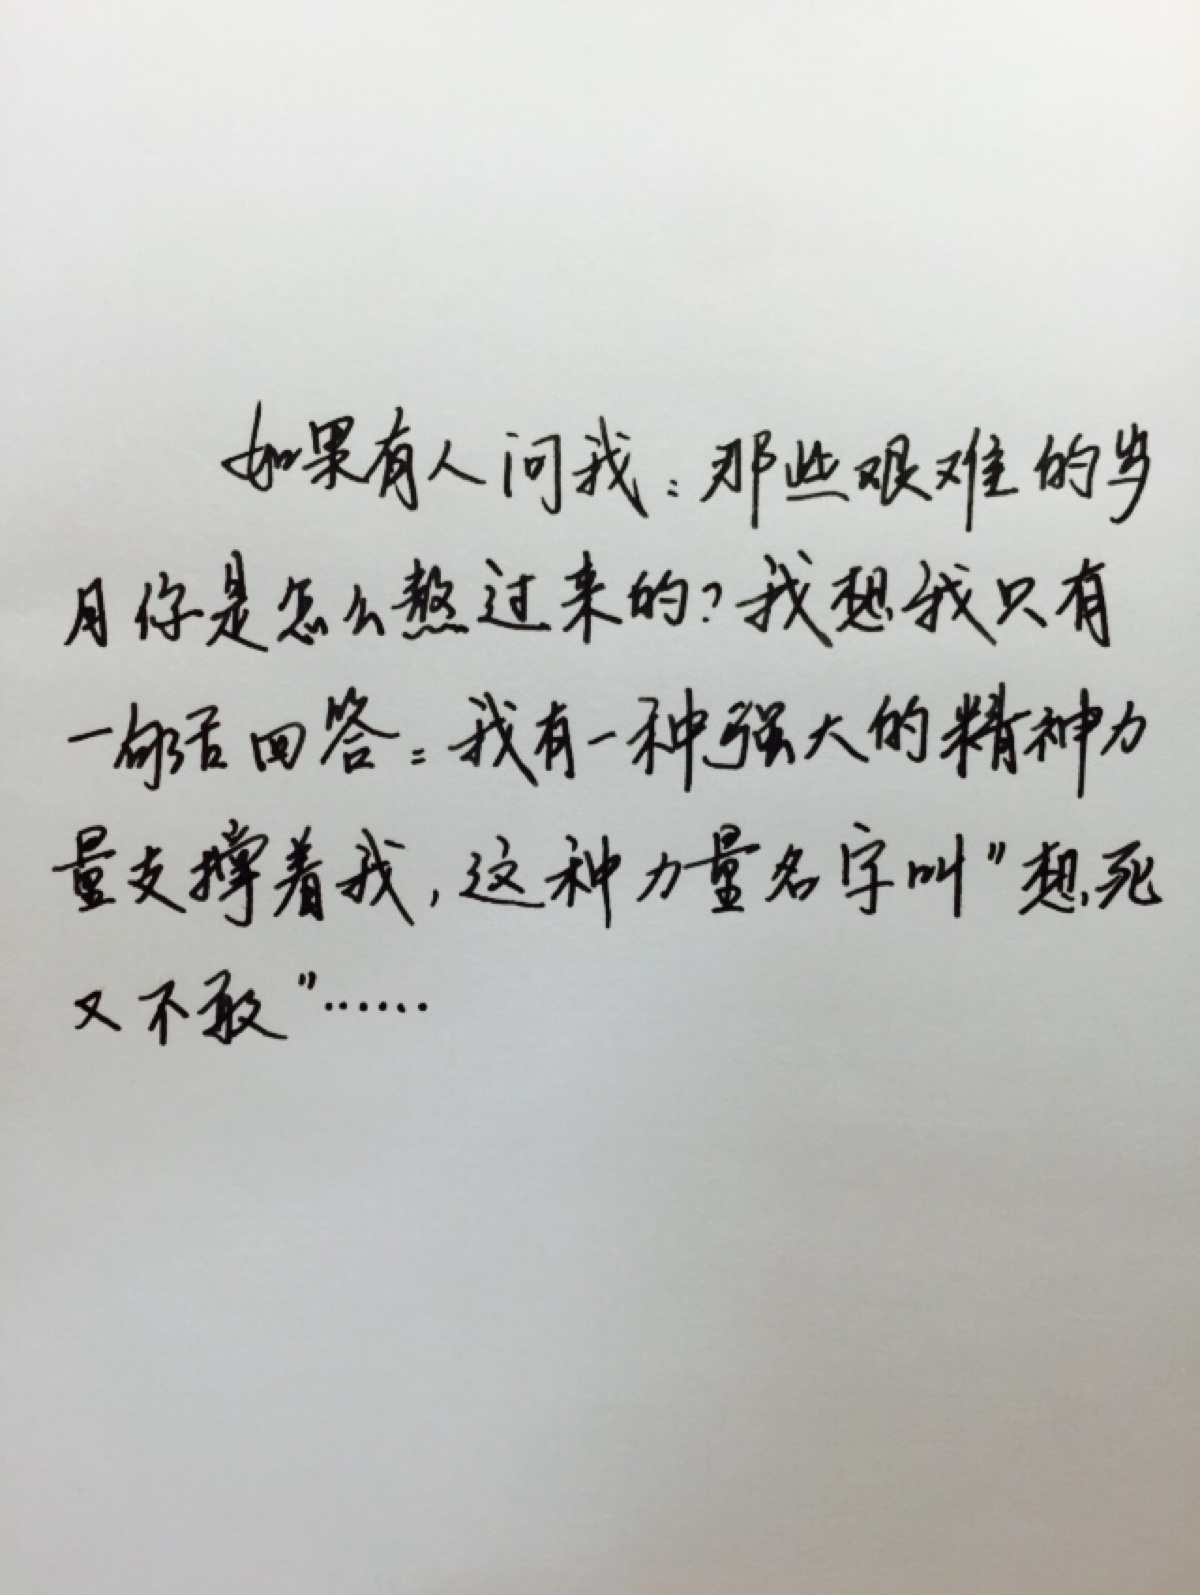 如果有人问我：那些艰难的岁
月你是怎么熬过来的？我想我只有
一句话回答：我有一种强大的精神力
量支撑着我，这种力量名字叫”想死
又不敢”……